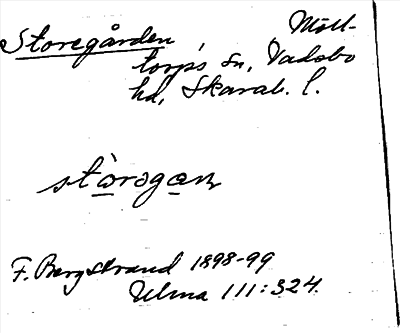 Storegården, Möll-
torps sn, Vadsbo
hd, Skarab. l.
stò̱rəga̱n
F. Bergstrand 1898-99
Ulma 111:324.